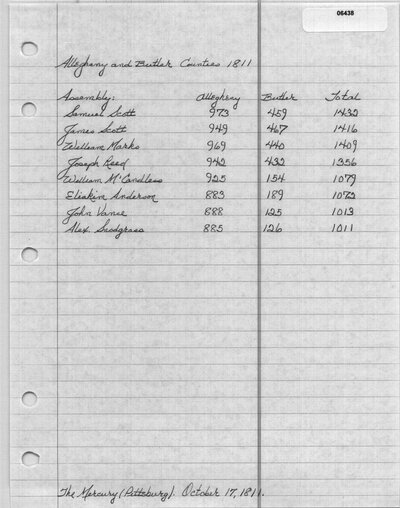 06438
Allegheny and Butler Counties 1811
Assembly: Allegheny Butler Total
Samuel Scott 973 459 1432
James Scott 949 467 1416
William Marks 969 440 1409
Joseph Reed 942 432 1356
William McCandless 925 154 1079
Eliakim Anderson 883 189 1072
John Vance 888 125 1013
Alex. Snodgrass 885 126 1011
The Mercury (Pittsburg). October 17, 1811.